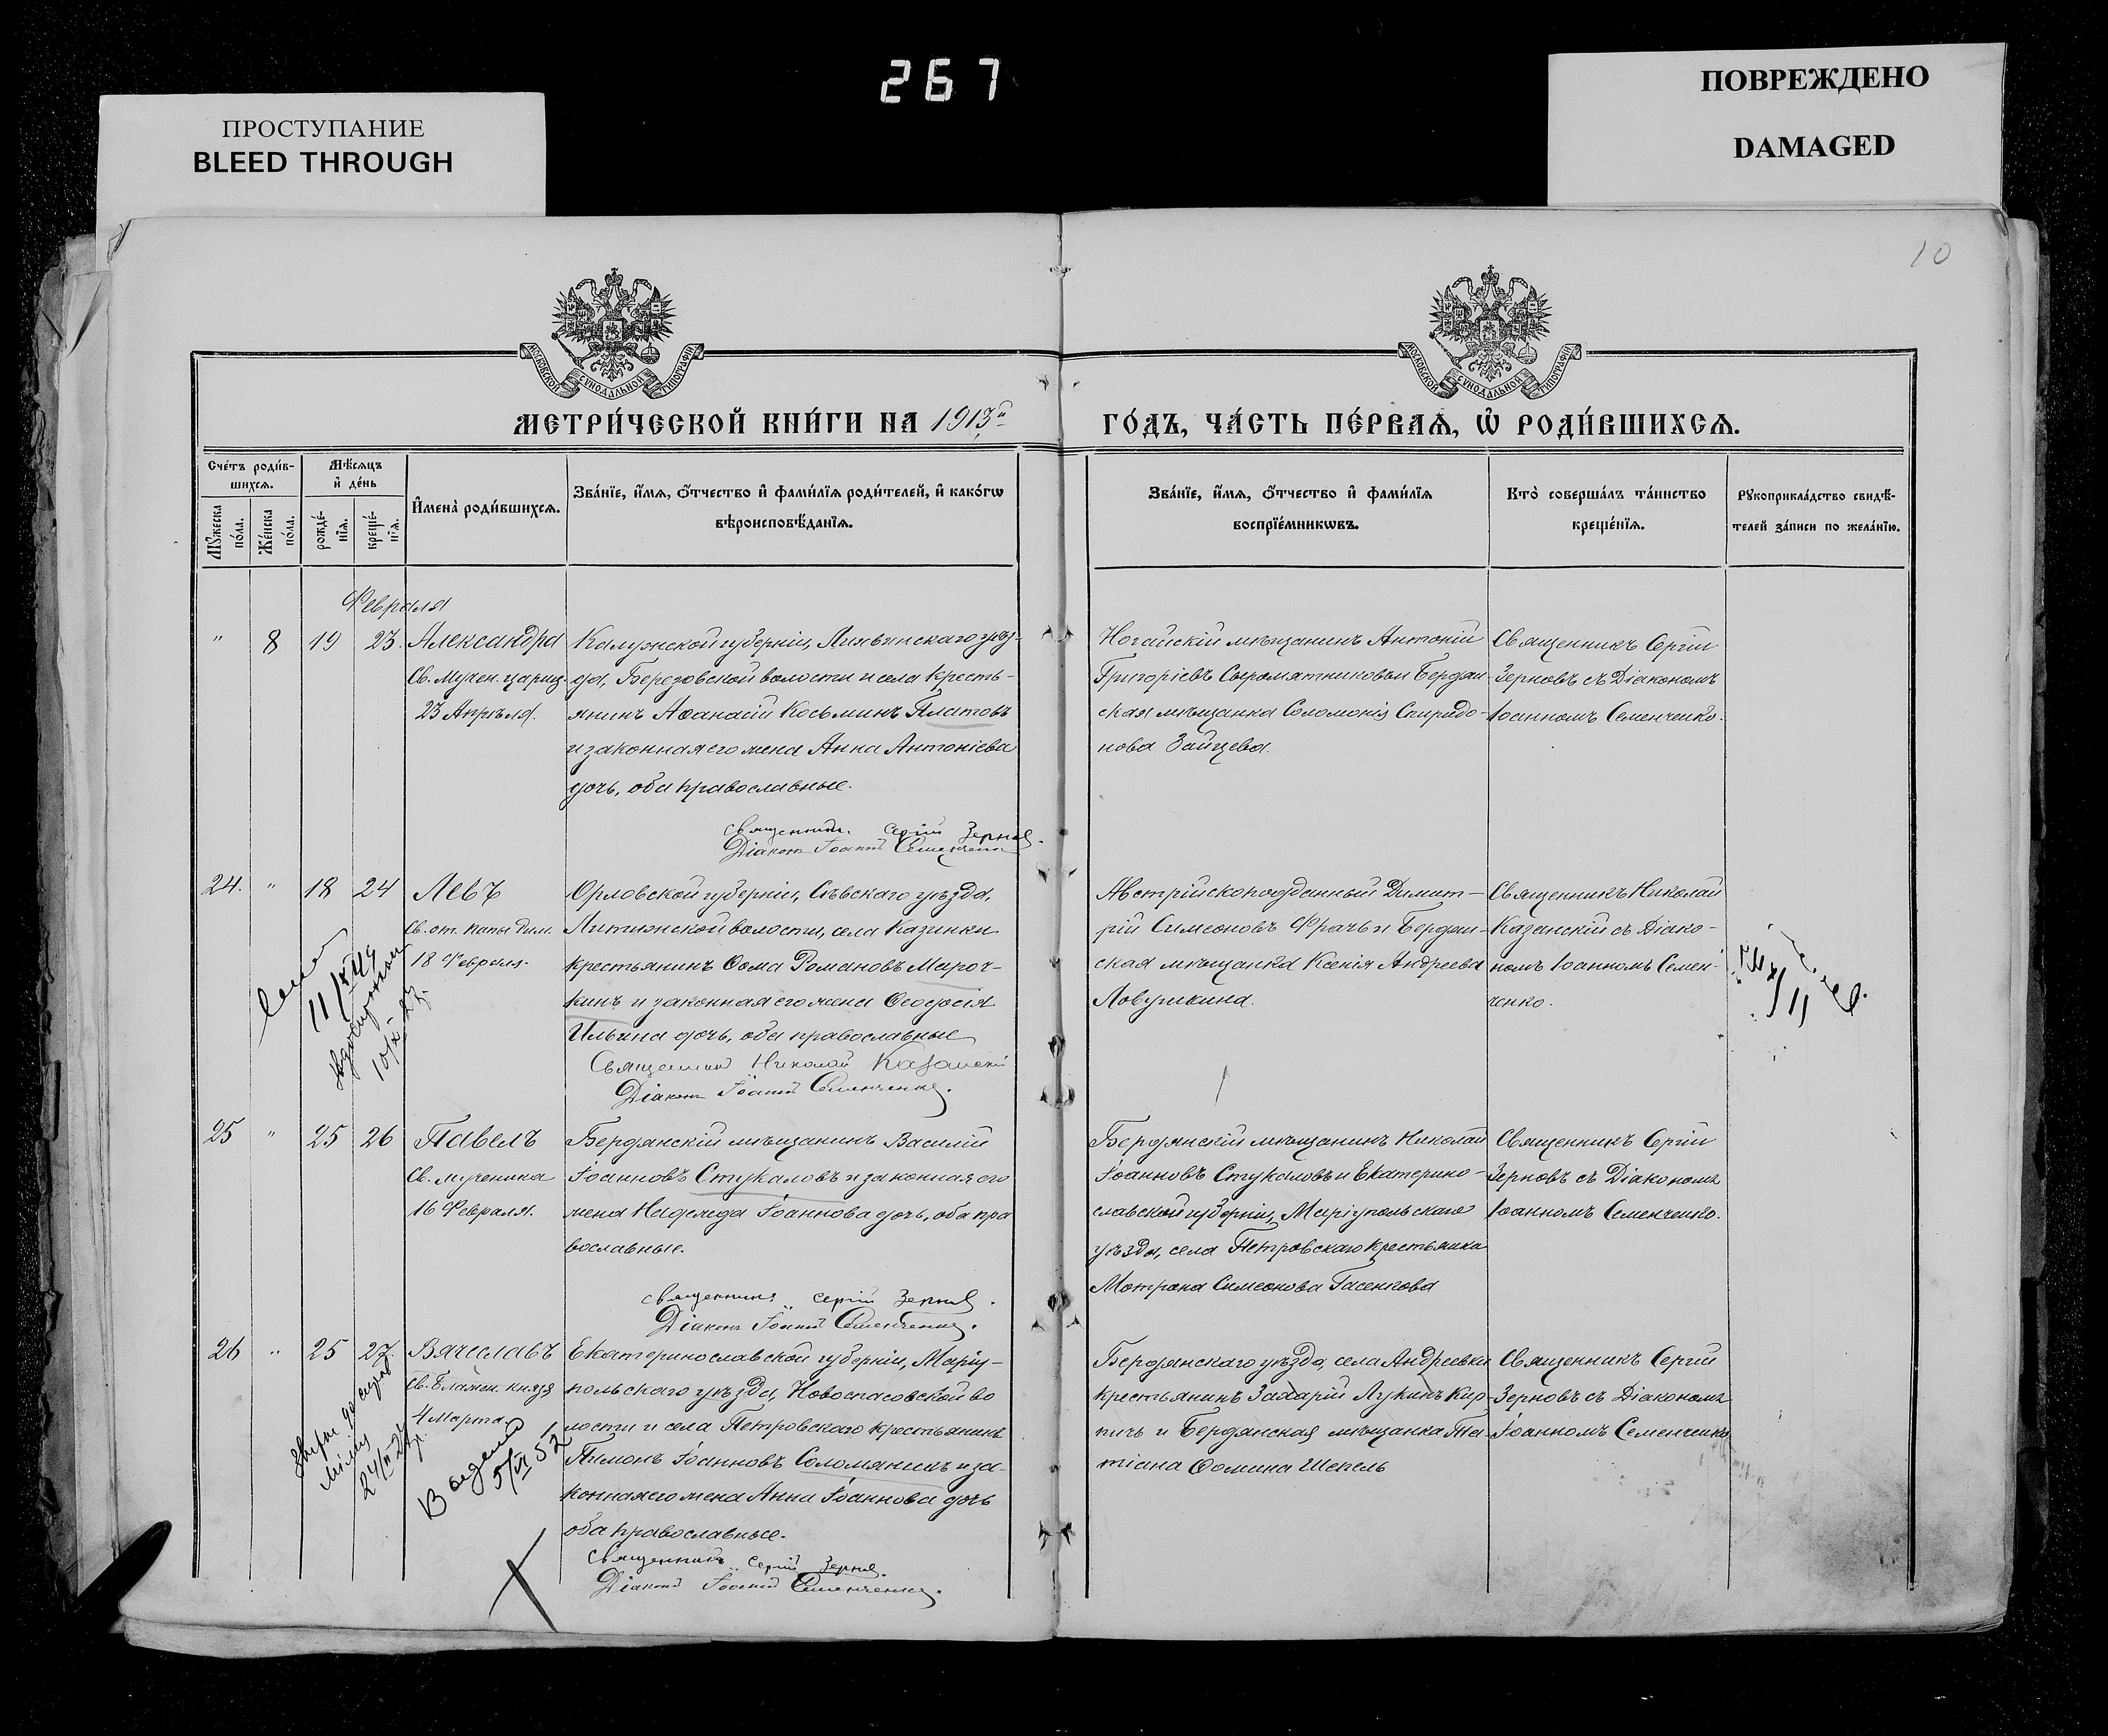 267
ПРОСТУПАНИЕ
BLEED THROUGH
ПОВРЕЖДЕНО
DAMAGED
10
МОСКОВСКОЙ СѴНОДАЛЬНОЙ ТИПОГРАФІИ
МОСКОВСКОЙ СѴНОДАЛЬНОЙ ТИПОГРАФІИ
МЕТРИ́ЧЕСКОЙ КНИ́ГИ НА 1913й
ГО́ДЪ, ЧА́СТЬ ПЕ́РВАѦ, Ѽ РОДИ́ВШИХСѦ.
Сче́тъ роди́в-
шихсѧ.
Мꙋжеска
по́ла.
Же́нска
по́ла.
Мѣ́сѧцъ
и҆ де́нь
рожде́-
нїѧ.
креще́-
нїѧ.
И҆мена̀ роди́вшихсѧ.
Зва́нїе, и҆́мѧ, ѻ҆́тчество и҆ фами́лїѧ роди́телей, и҆ како́гѡ
вѣроисповѣ́данїѧ.
Зва́нїе, и҆́мѧ, ѻ҆́тчество и҆ фами́лїѧ
воспрїе́мникѡвъ.
Кто̀ соверша́лъ та́инство
креще́нїѧ.
Рꙋкоприкла́дство свидѣ́-
телей за́писи по жела́нїю.
Февраля
" 8 19 23. Александра
Св. Мучен. цариц.
23 Апрѣля.
Калужской губерніи, Лихвинскаго уѣз-
да, Березовской волости и села кресть-
янинъ Аѳанасій Косьминъ Платовъ
и законная его жена Анна Антоніева
дочь, оба православные.
Священникъ Сергій Зерновъ.
Діаконъ Іоаннъ Семенченко
Ногайскій мѣщанинъ Антоній
Григоріевъ Сыромятниковъ и Бердян-
ская мѣщанка Соломонія Спиридо-
нова Зайцева.
Священникъ Сергій
Зерновъ съ Діакономъ
Іоанномъ Семенченко.
24. " 18 24 Левъ
Св. от. папы Рим.
18 Февраля.
Орловской губерніи, Сѣвскаго уѣзда,
Литижской волости, села Казинки
крестьянинъ Ѳома Романовъ Мароч-
кинъ и законная его жена Ѳеодосія
Ильина дочь, оба православные
Священникъ Николай Казанскій
Діаконъ Іоаннъ Семенченко.
Австрійскоподданный Димит-
рій Симеоновъ Фрачъ и Бердян-
ская мѣщанка Ксенія Андреева
Ловушкина.
Священникъ Николай
Казанскій съ Діако-
номъ Іоанномъ Семен-
ченко.
25 " 25 26 Павелъ
Св. мученика
16 Февраля.
Бердянскій мѣщанинъ Василій
Іоанновъ Стукаловъ и законная его
жена Надежда Іоаннова дочь, оба пра
вославные.
Священникъ Сергій Зерновъ.
Діаконъ Іоаннъ Семенченко.
Бердянскій мѣщанинъ Николай
Іоанновъ Стукаловъ и Екатерино-
славской губерніи, Маріупольскаго
уѣзда, села Петровскаго крестьянка
Мотрона Симеонова
Священникъ Сергій
Зерновъ съ Діакономъ
Іоанномъ Семенченко.
26 " 25 27. Вячеславъ
Св. Блажен. князя
4 Марта.
Выдано
5/VI 52
Екатеринославской губерніи, Маріу-
польскаго уѣзда, Новоспасовской во
лости и села Петровскаго крестьянинъ
Пимонъ Іоанновъ Соломяникъ и за-
конная его жена Анна Іоаннова дочь
оба православные.
Священникъ Сергій Зерновъ.
Діаконъ Іоаннъ Семенченко.
Бердянскаго уѣзда, села Андреевки
крестьянинъ Захарій Лукинъ Кир-
пичъ и Бердянская мѣщанка Та-
тіана Ѳомина Шепель
Священникъ Сергій
Зерновъ съ Діакономъ
Іоанномъ Семенченко